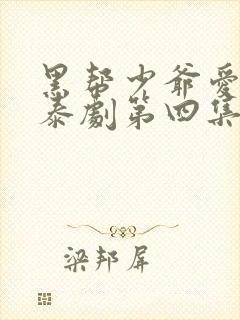 黑帮少爷爱
泰劇第四集
梁邦屏